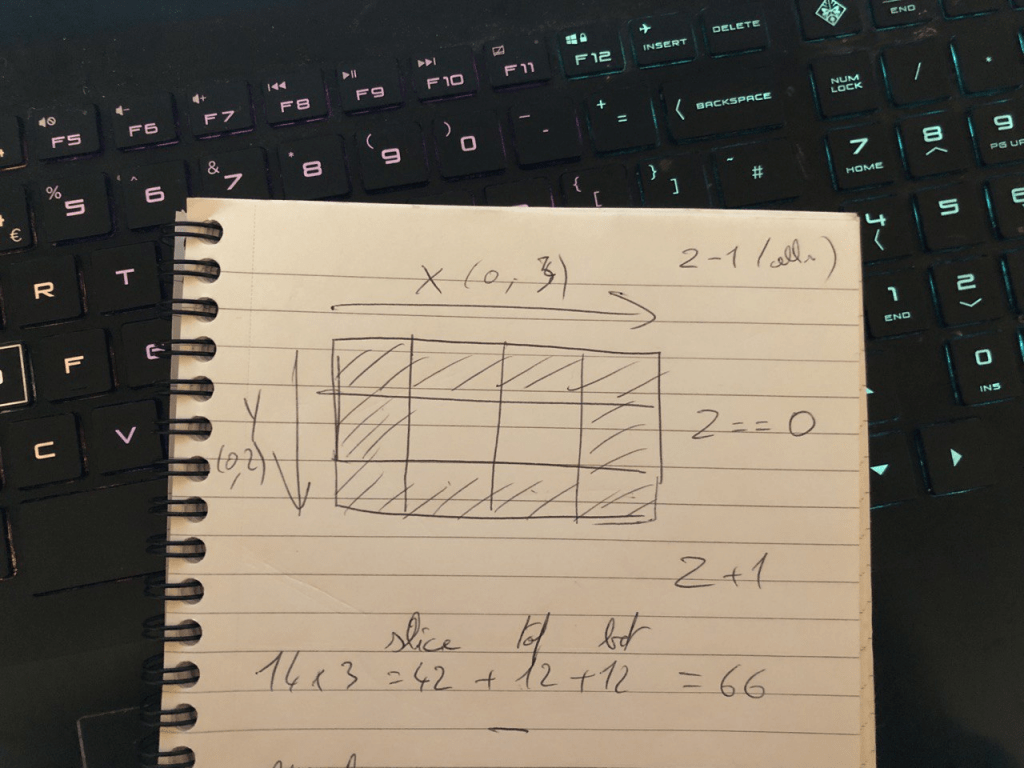 F5 F6 F7 F8 F9 F10 F11 F12 INSERT DELETE END
% 5 ^ 6 & 7 * 8 ( 9 ) 0 _ - + = BACKSPACE NUM LOCK / *
{ [ } ] ~ # 7 HOME 8 9 PG UP
€ R T 4 5 6
F C V
1 END 2 0 INS
X (0, 3) 2-1
Y
(0,2) 2 == 0
2+1
slice top bot
14 x 3 = 42 + 12 + 12 = 66